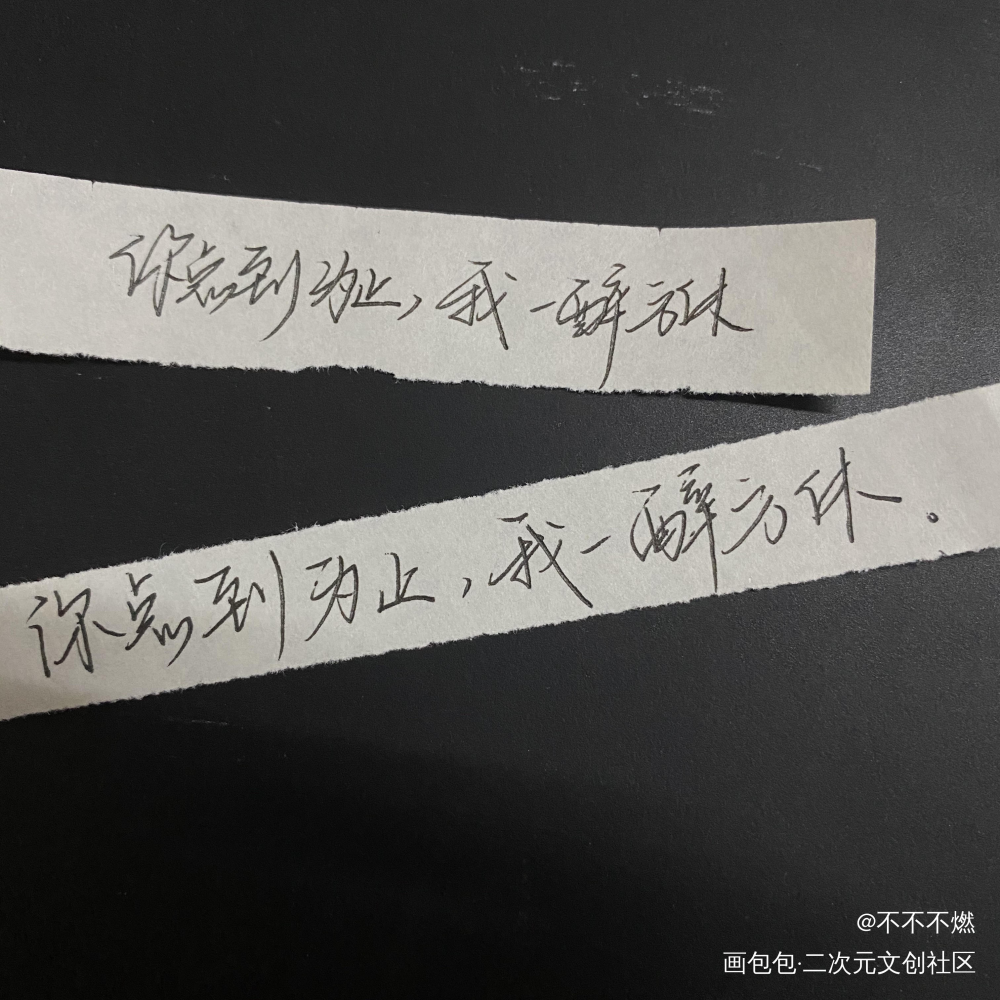 你点到为止，我一醉方休
你点到为止，我一醉方休。
@不不不燃
画包包·二次元文创社区